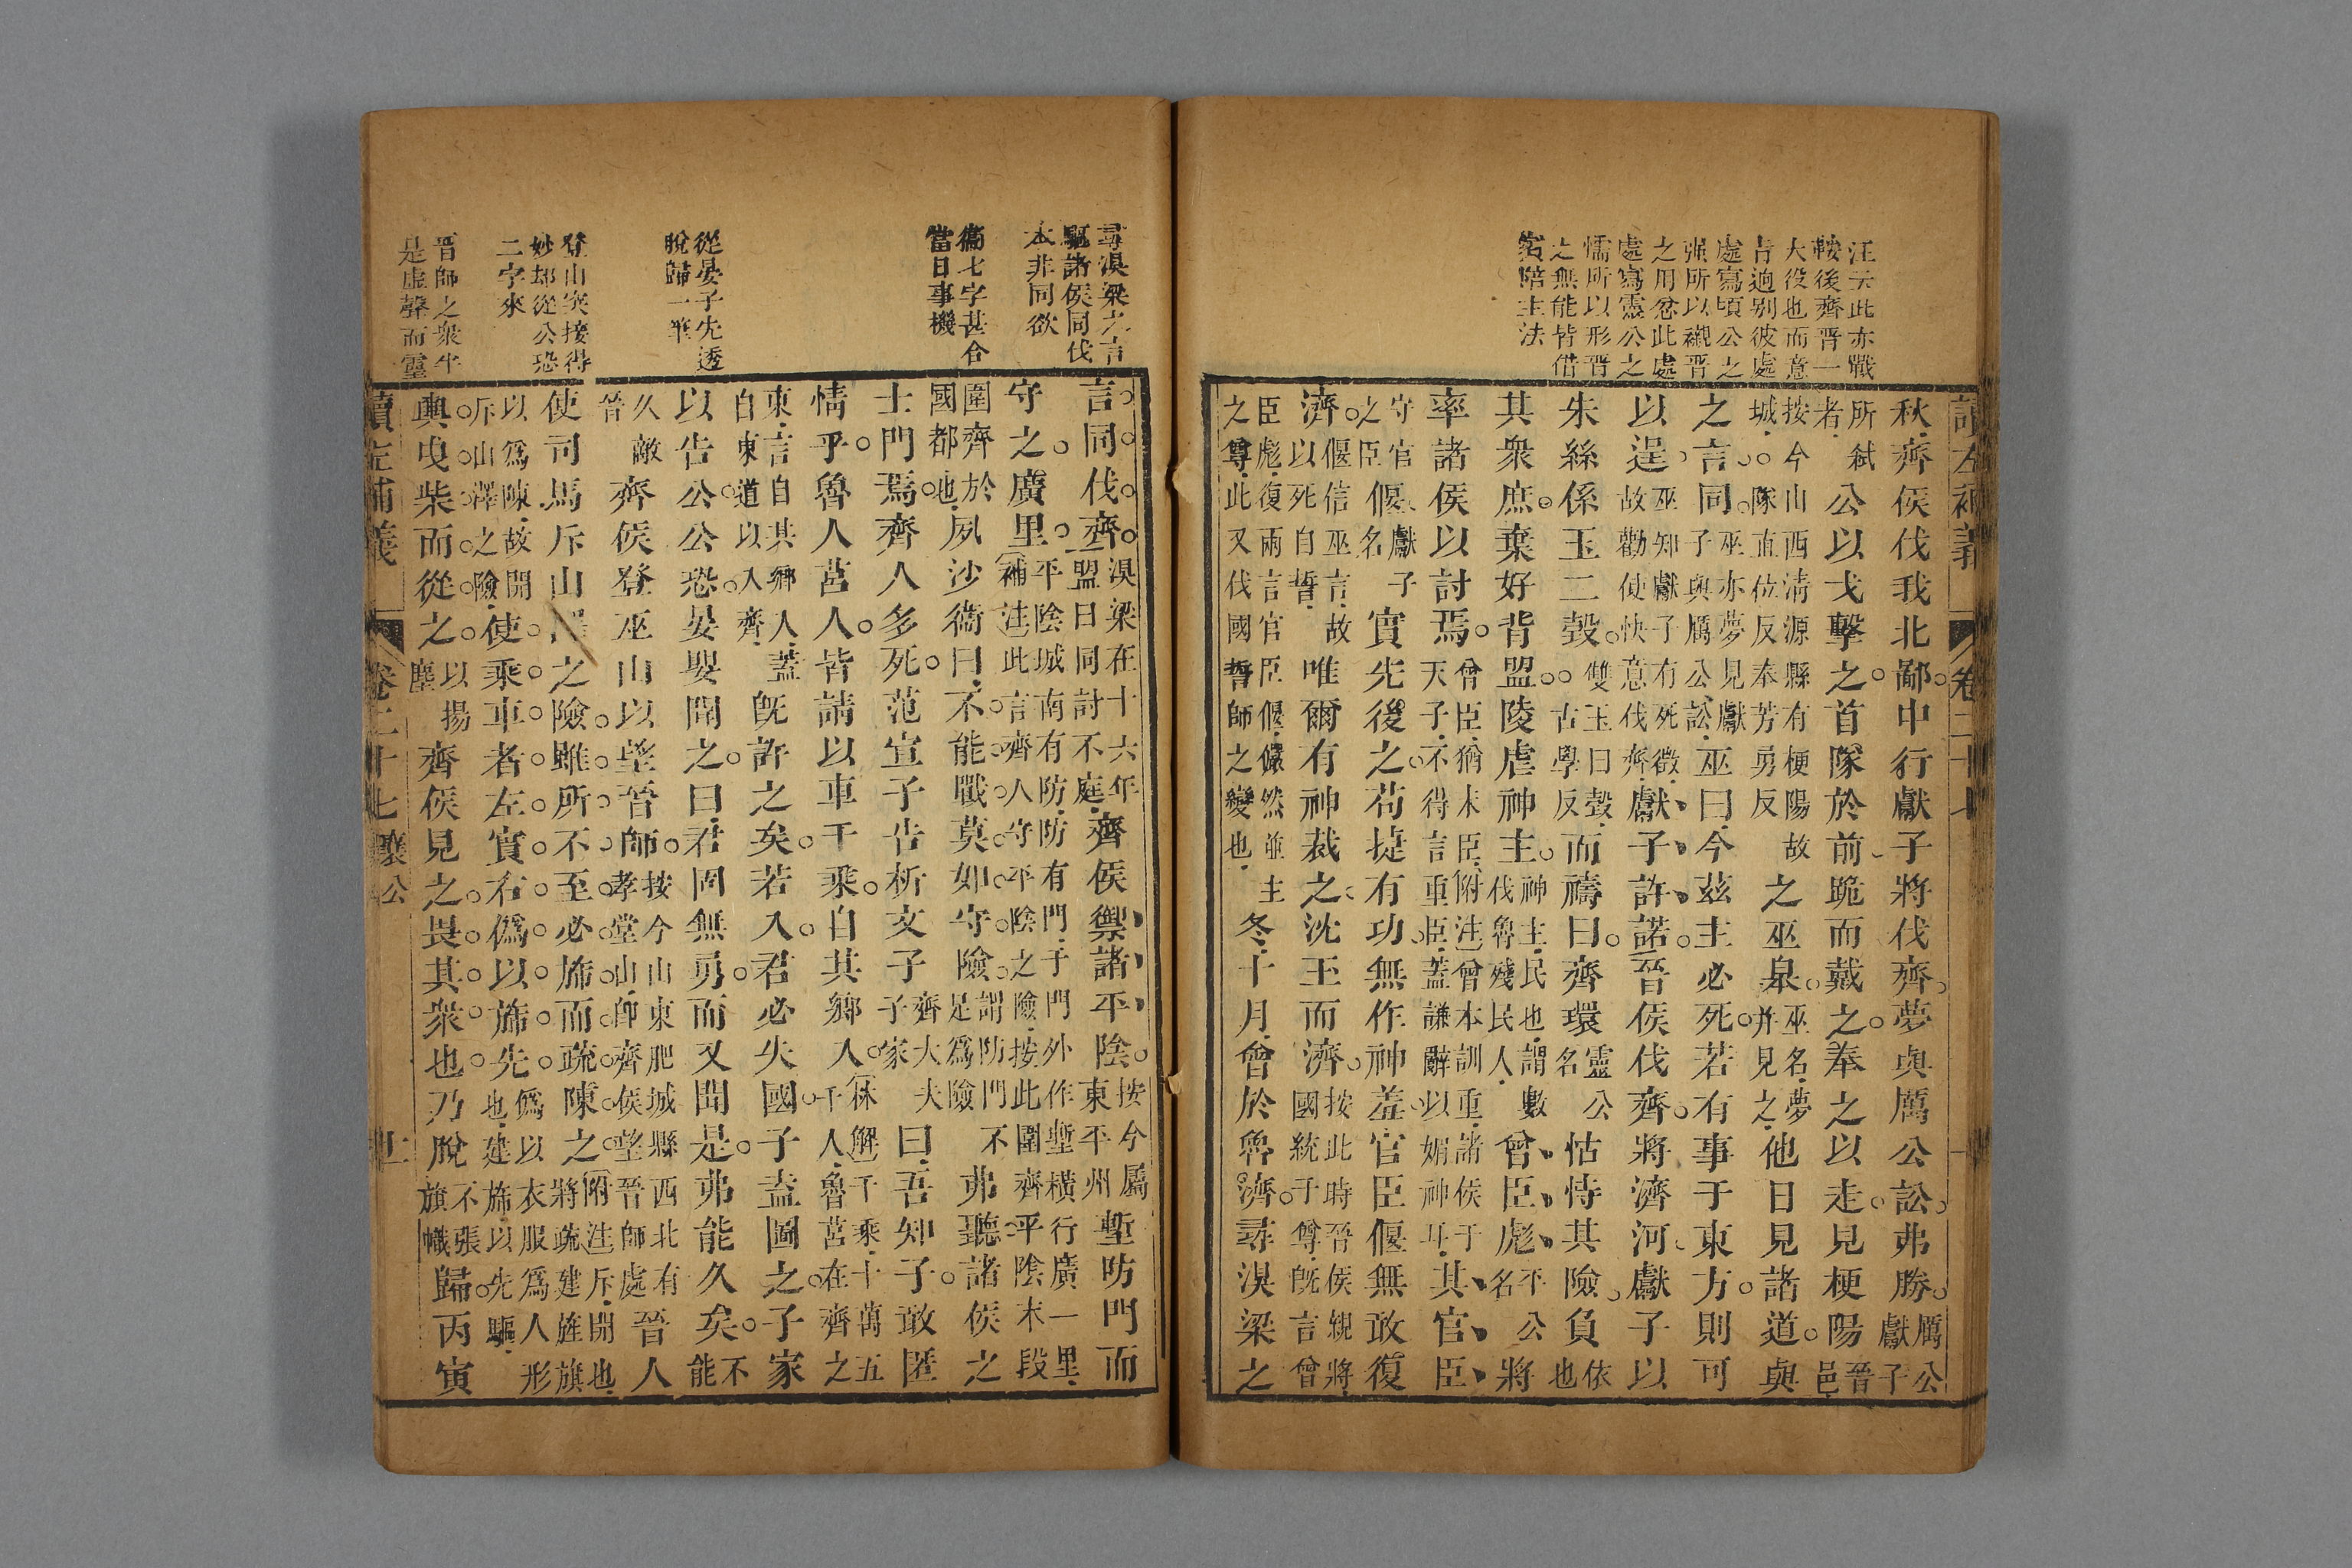 汪云此亦戰
鞍後齊晉一
大役也而意
旨逈别彼處
處寫頃公之
强所以襯晉
之用忿此處
處寫靈公之
懦所以形晉
之無能皆借
賓陪主法
讀左補義 卷二十七
秋齊侯伐我北鄙中行獻子將伐齊夢與厲公訟弗勝厲公獻子
所弑者公以戈擊之首隊於前跪而戴之奉之以走見梗陽晉邑
按今山西清源縣有梗陽故城隊直位反奉芳勇反之巫臯巫名夢并見之他日見諸道與
之言同巫亦夢見獻子與厲公訟巫曰今茲主必死若有事于東方則可
以逞巫知獻子有死徵故勸使快意伐齊獻子許諾晉侯伐齊將濟河獻子以
朱絲係玉二瑴雙玉曰瑴古學反而禱曰齊環靈公名怙恃其險負依也
其衆庶棄好背盟陵虐神主神主民也謂數伐魯殘民人曾臣彪平公名將
率諸侯以討焉曾臣猶末臣附注曾本訓重諸侯于天子不得言重臣蓋謙辭以媚神耳其官臣
守官之臣偃獻子名實先後之苟捷有功無作神羞官臣偃無敢復
濟偃信巫言故以死自誓唯爾有神裁之沈玉而濟按此時晉侯親將國統于尊旣言曾
臣彪復兩言官臣偃儼然並主之尊此又伐國誓師之變也冬十月會於魯濟尋湨梁之
尋湨梁之言
驅諸侯同伐
本非同欲
衞七字甚合
當日事機
從晏子先透
脫歸一筆
登山突接得
妙却從公恐
二字來
晉師之衆半
是虛聲而靈
言同伐齊湨梁在十六年盟曰同討不庭齊侯禦諸平陰按今屬東平州塹防門而
守之廣里補注平陰城南有防防有門子門外作塹橫行廣一里此言齊人守平陰之險按此圍齊平陰末段
圍齊於國都也夙沙衞曰不能戰莫如守險謂防門不是爲險弗聽諸侯之
士門焉齊人多死范宣子告析文子齊大夫子家曰吾知子敢匿
情乎魯人莒人皆請以車千乘自其鄉入林解千乘十萬五千人魯莒在齊之
東言自其鄉人蓋自東道以入齊旣許之矣若入君必失國子盍圖之子家
以告公公恐晏嬰聞之曰君固無勇而又聞是弗能久矣不能
久敵晉齊侯登巫山以望晉師按今山東肥城縣西北有孝堂山卽齊侯望晉師處晉人
使司馬斥山澤之險雖所不至必斾而疏陳之附注斥開也將疏建旌旗
以爲陳故開斥山澤之險使乘車者左實右僞以斾先僞以衣服爲人形也建斾以先驅
輿曳柴而從之以揚塵齊侯見之畏其衆也乃脫不張旗幟歸丙寅
讀左補義 卷二十七 襄公